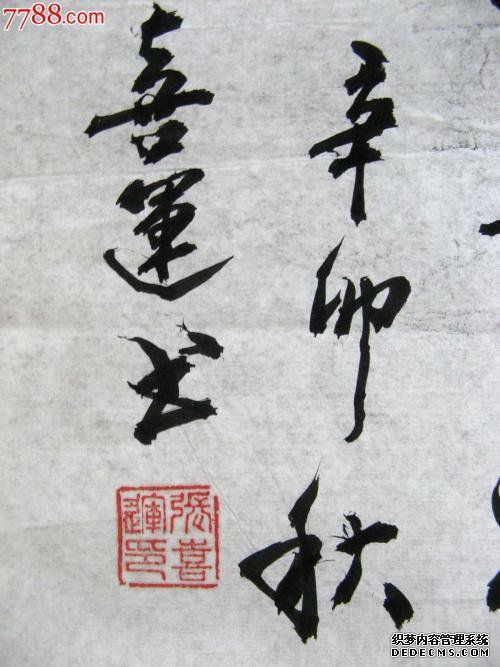 7788.com
辛卯秋
喜運书
張喜
運印
织梦内容管理系统
DEDECMS.COM